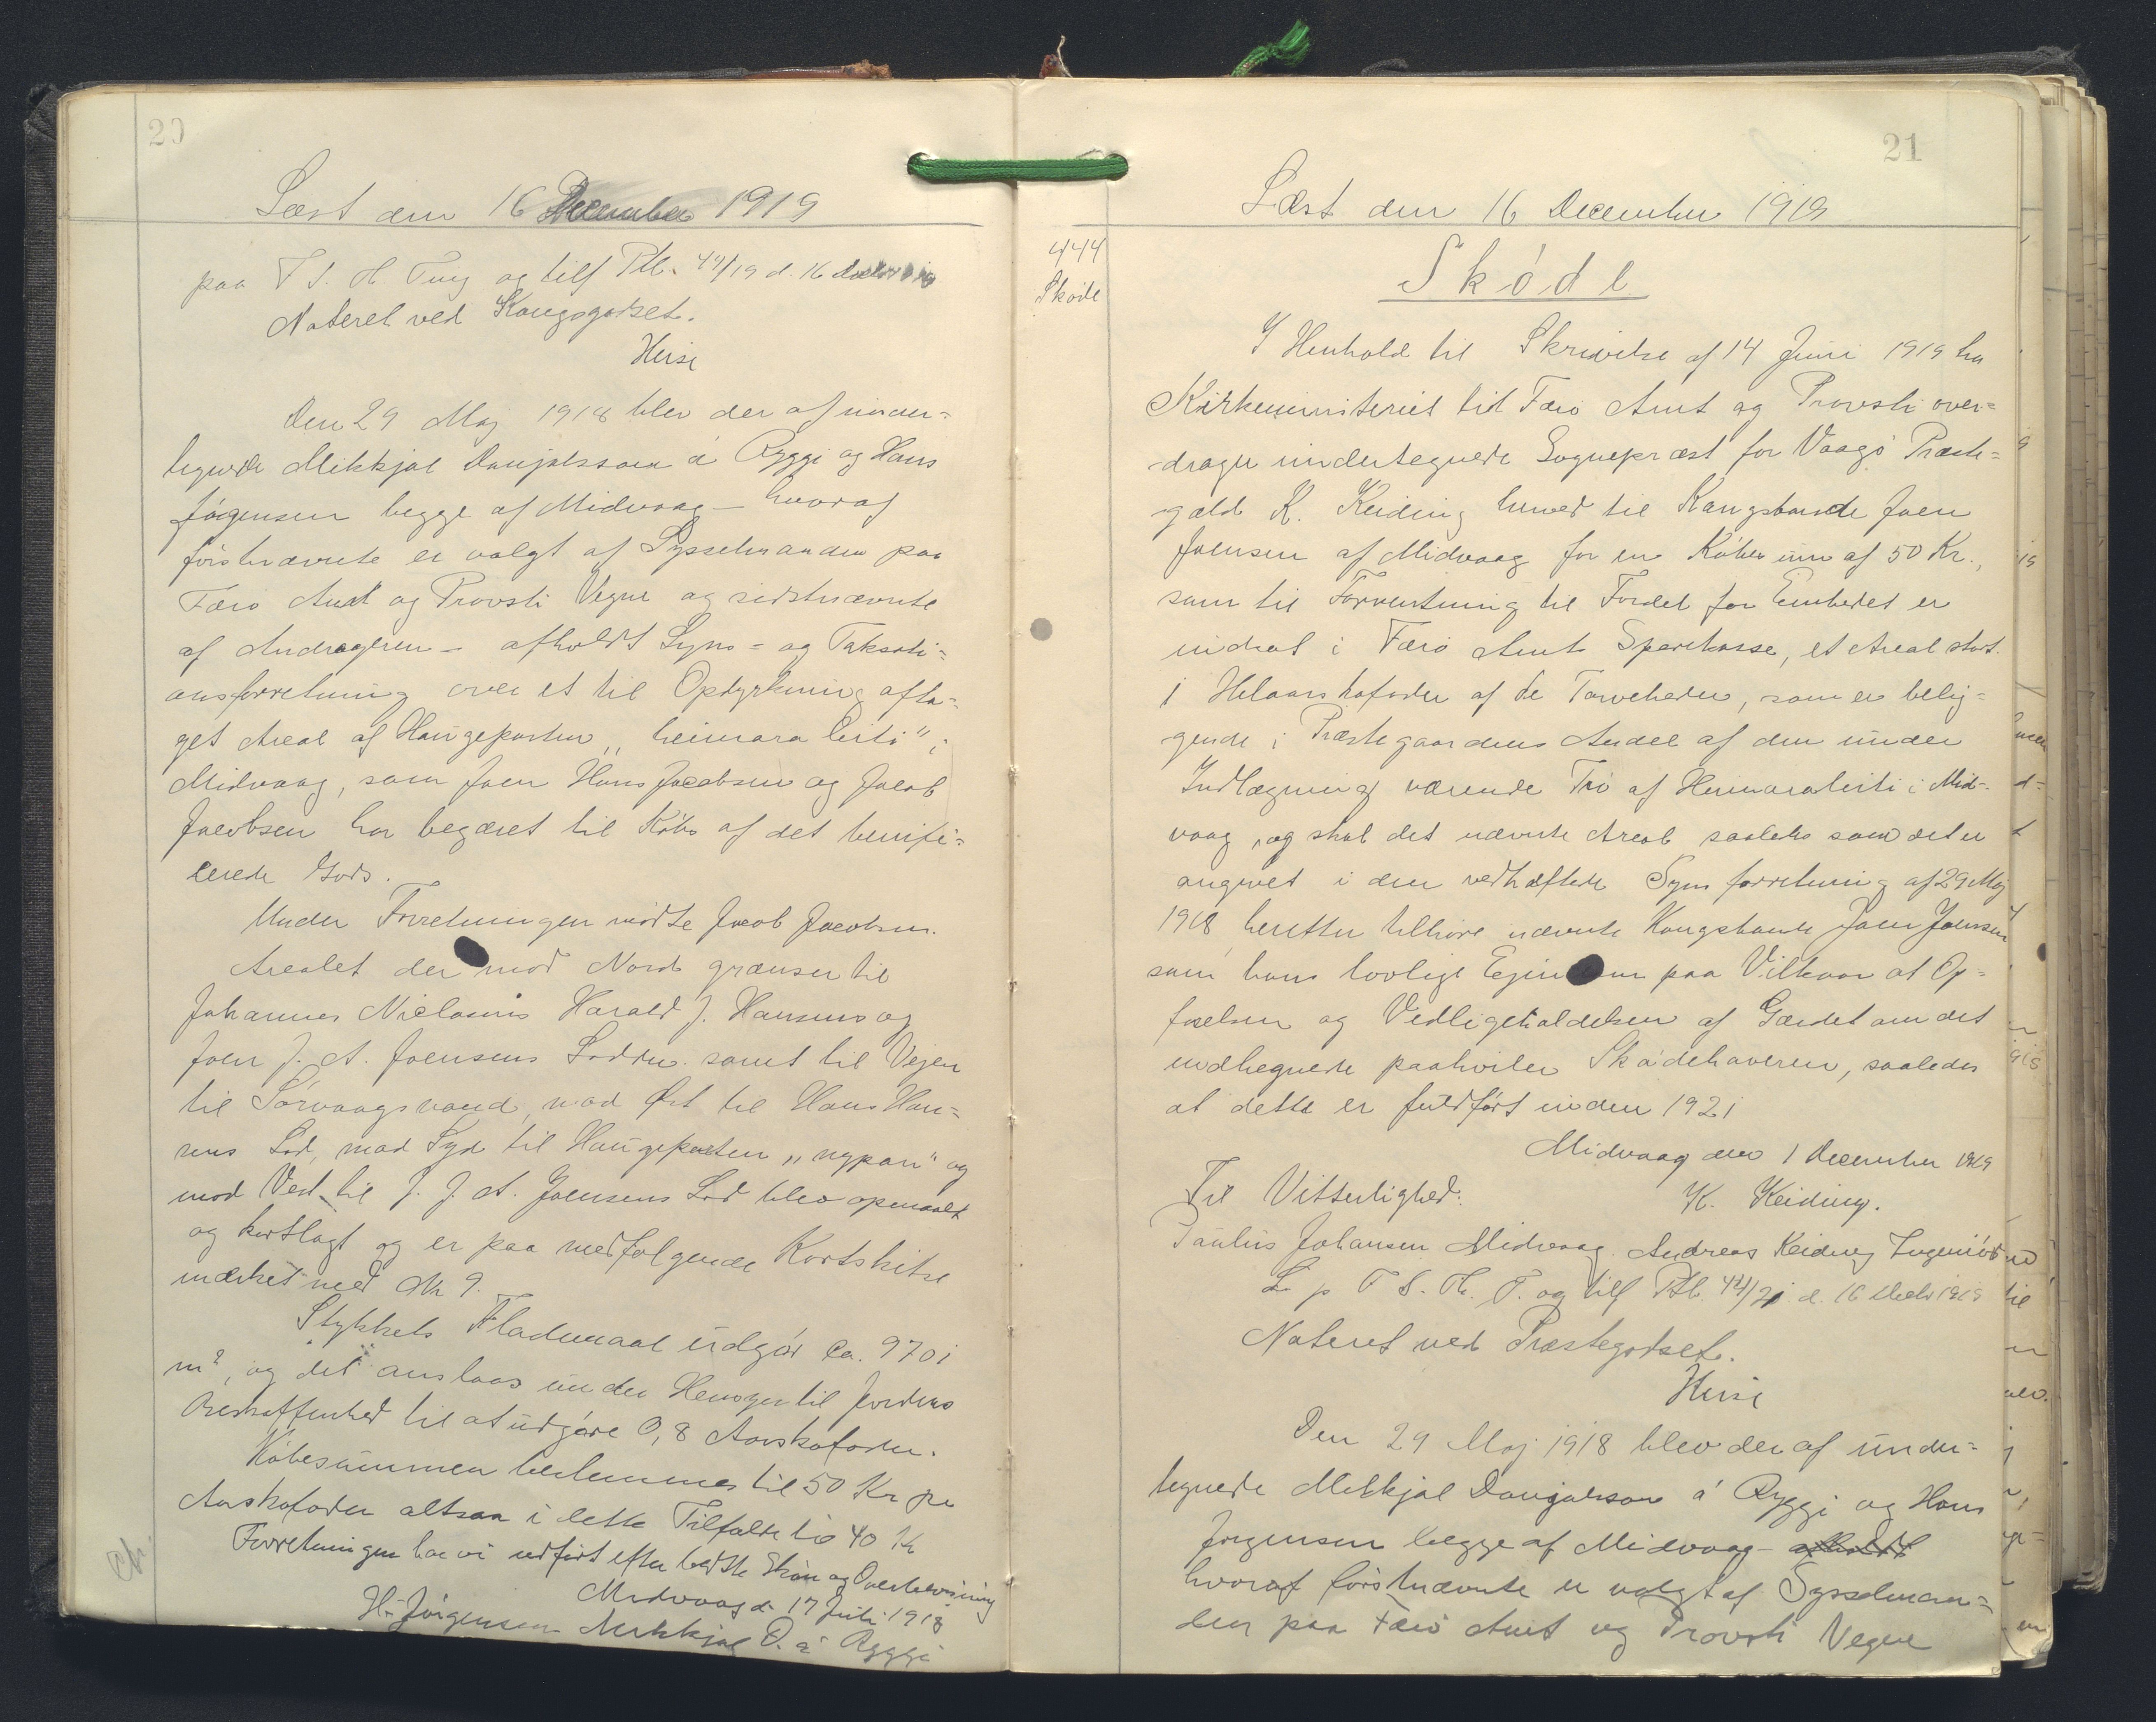 20
Læst den 16 December 1919
paa T S. H. Ting og tilf Ptb. 44/19 d. 16 Decbr 1919
Noteret ved Kongsgodset.
Heise
Den 29 Maj 1918 blev der af under=
tegnede Mikkjal Danjalsson á Ryggi og Hans
Jörgensen begge af Midvaag – hvoraf
førstnævnte er valgt af Sysselmanden paa
Færö Amt og Provsti Vegne og sidstnævnte
af Andrageren – afholdt Syns= og Taksati=
onsforretning over et til Opdyrkning afta=
get Areal af Haugeparten "heimara leiti" i
Midvaag, som Joen Hans Jacobsen og Jacob
Jacobsen har begæret til Købs af det benifi=
cerede Gods.
Under Forretningen mödte Jacob Jacobsen.
Arealet der mod Nord grænser til
Johannes Niclasens Harald J. Hansens og
Joen J. A. Joensens Lodder samt til Vejen
til Sörvaagsvand, mod Øst til Hans Han=
sens Lod, mod Syd til Haugeparten "nypan" og
mod Vest til J. J. A. Joensens Lod blev opmaalt
og kortlagt og er paa medfølgende Kortskitse
mærket med No 9.
Stykkets Flademaal udgör ca. 9701
m², og det anslaas under Hensyn til Jordens
Beskaffenhed til at udgöre 0,8 Aarskofoder.
Köbesummen bestemmes til 50 Kr pr
Aarskofoder altsaa i dette Tilfælde til 40 Kr
Forretningen har vi udfört efter bedste Skön og Overbevisning
Midvaag d. 17 Juli 1918
H. Jörgensen Mikkjal D. á Ryggi
21
Læst den 16 December 1919
444
Sköde
Sköde
I Henhold til Skrivelse af 14 Juni 1919 fra
Kirkeministeriet til Færö Amt og Provsti over=
drager undertegnede Sognepræst for Vaagö Præste=
gæld K. Keiding herved til Kongsbonde Joen
Joensen af Midvaag for en Köbesum af 50 Kr.,
som til Forrentning til Fordel for Embedet er
indsat i Færö Amts Sparekasse, et Areal stort
1 Helaarskofoder af de Tarveheder, som er belig=
gende i Præstegaardens Andel af den under
Indlægning værende Trö af Heimaraleiti i Mid=
vaag, og skal det nævnte Areal saaledes som det er
angivet i den vedhæftede Synsforretning af 29 Maj
1918 herefter tilhöre nævnte Kongsbonde Joen Joensen
som hans lovlige Ejendom paa Vilkaar at Op=
förelsen og Vedligeholdelsen af Gærdet om det
indhegnede paahviler Sködehaveren, saaledes
at dette er fuldfört inden 1921
Midvaag den 1 December 1919
Til Vitterlighed: K. Keiding.
Paulus Johansen Midvaag. Andreas Keiding Ingeniör
L. p T S. H. T. og tilf Ptb. 44/21 d. 16 Decbr 1919
Noteret ved Præstegodset.
Heise
Den 29 Maj 1918 blev der af under=
tegnede Mikkjal Danjalsson á Ryggi og Hans
Jörgensen begge af Midvaag – afholdt
hvoraf förstnævnte er valgt af Sysselman=
den paa Færö Amt og Provsti Vegne